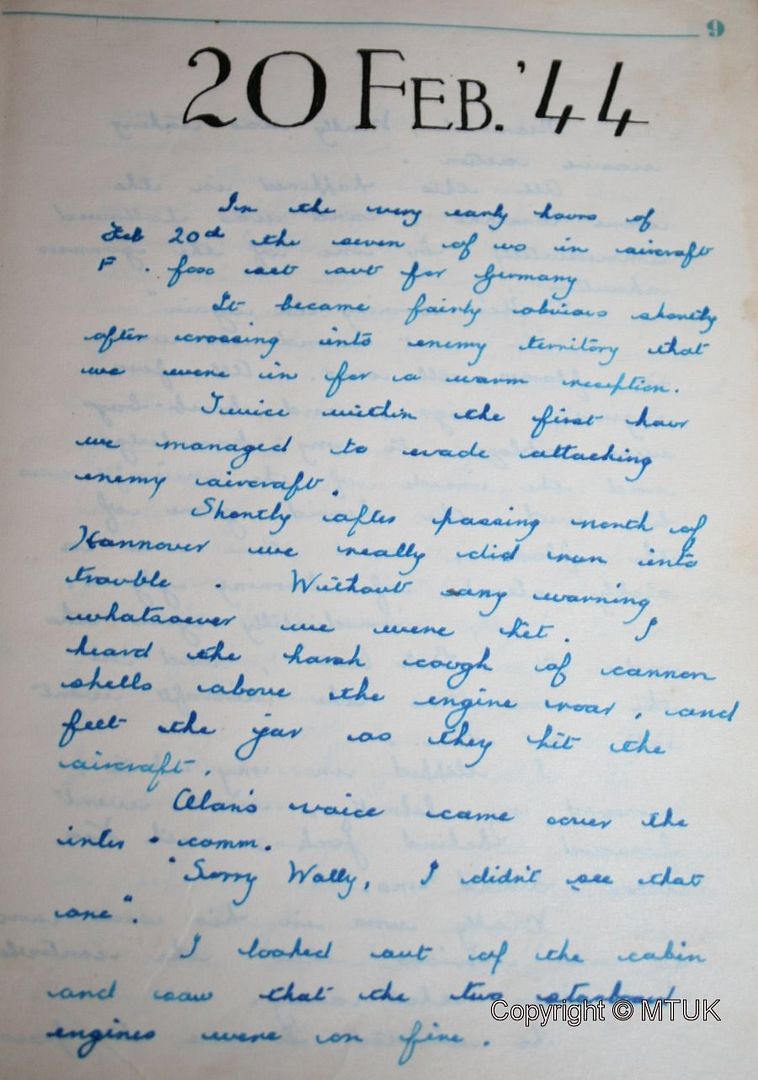 9
20 FEB. '44
In the very early hours of
Feb 20th the seven of us in aircraft
F. fox set out for Germany
It became fairly obvious shortly
after crossing into enemy territory that
we were in for a warm reception.
Twice within the first hour
we managed to evade attacking
enemy aircraft.
Shortly after passing north of
Hannover we really did run into
trouble. Without any warning
whatsoever we were hit. I
heard the harsh cough of cannon
shells above the engine roar, and
felt the jar as they hit the
aircraft.
Alan's voice came over the
inter-comm.
"Sorry Wally, I didn't see that
one".
I looked out of the cabin
and saw that the two starboard
engines were on fire.
Copyright © MTUK